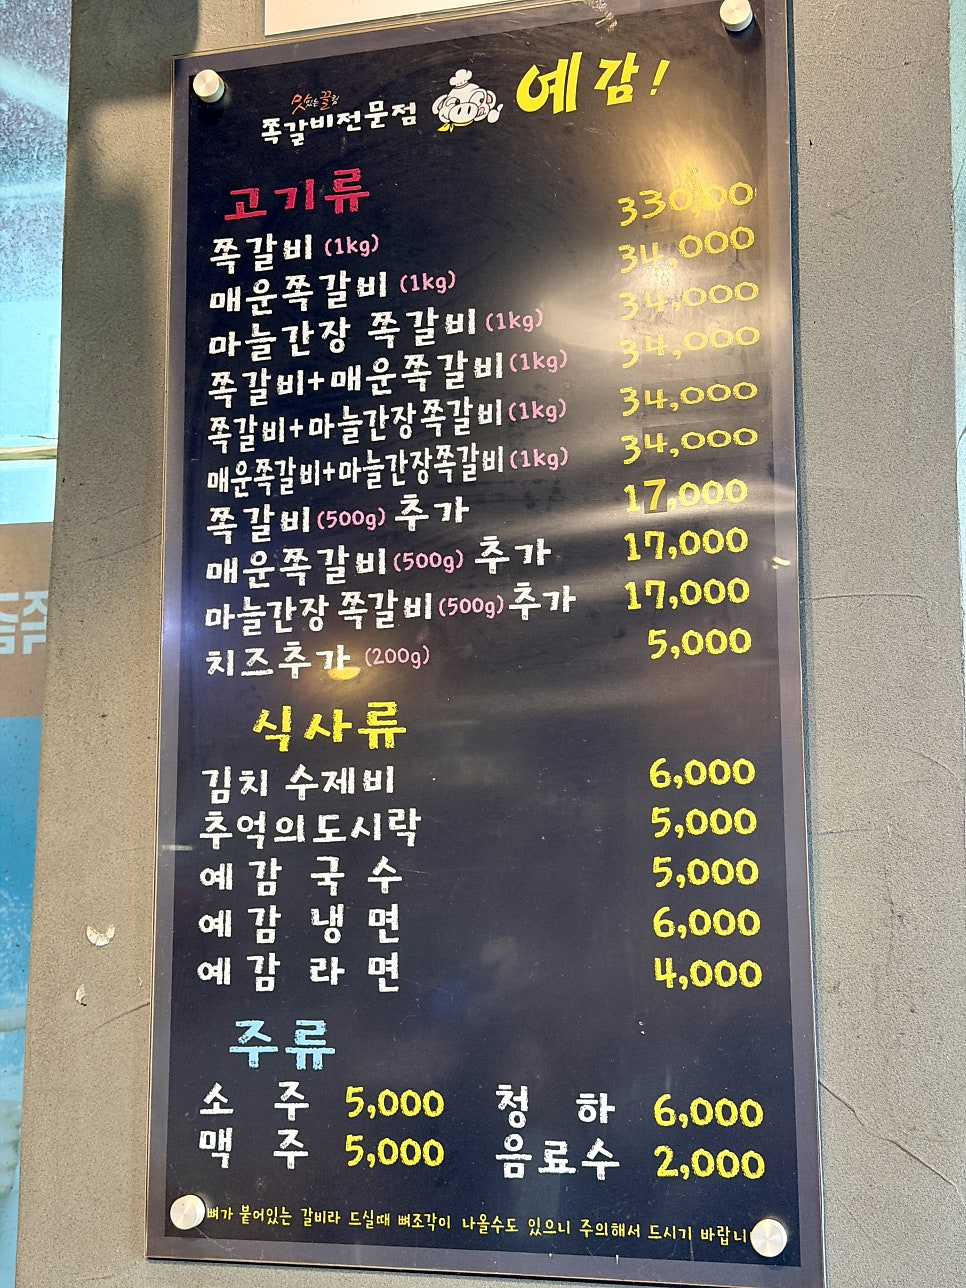 맛있는 끌림
쪽갈비전문점 예감!
고기류
쪽갈비 (1kg) 330,00
매운쪽갈비 (1kg) 34,000
마늘간장 쪽갈비 (1kg) 34,000
쪽갈비+매운쪽갈비 (1kg) 34,000
쪽갈비+마늘간장쪽갈비 (1kg) 34,000
매운쪽갈비+마늘간장쪽갈비 (1kg) 34,000
쪽갈비 (500g) 추가 17,000
매운쪽갈비 (500g) 추가 17,000
마늘간장 쪽갈비 (500g) 추가 17,000
치즈추가 (200g) 5,000
식사류
김치 수제비 6,000
추억의도시락 5,000
예감국수 5,000
예감냉면 6,000
예감라면 4,000
주류
소주 5,000 청하 6,000
맥주 5,000 음료수 2,000
뼈가 붙어있는 갈비라 드실때 뼈조각이 나올수도 있으니 주의해서 드시기 바랍니